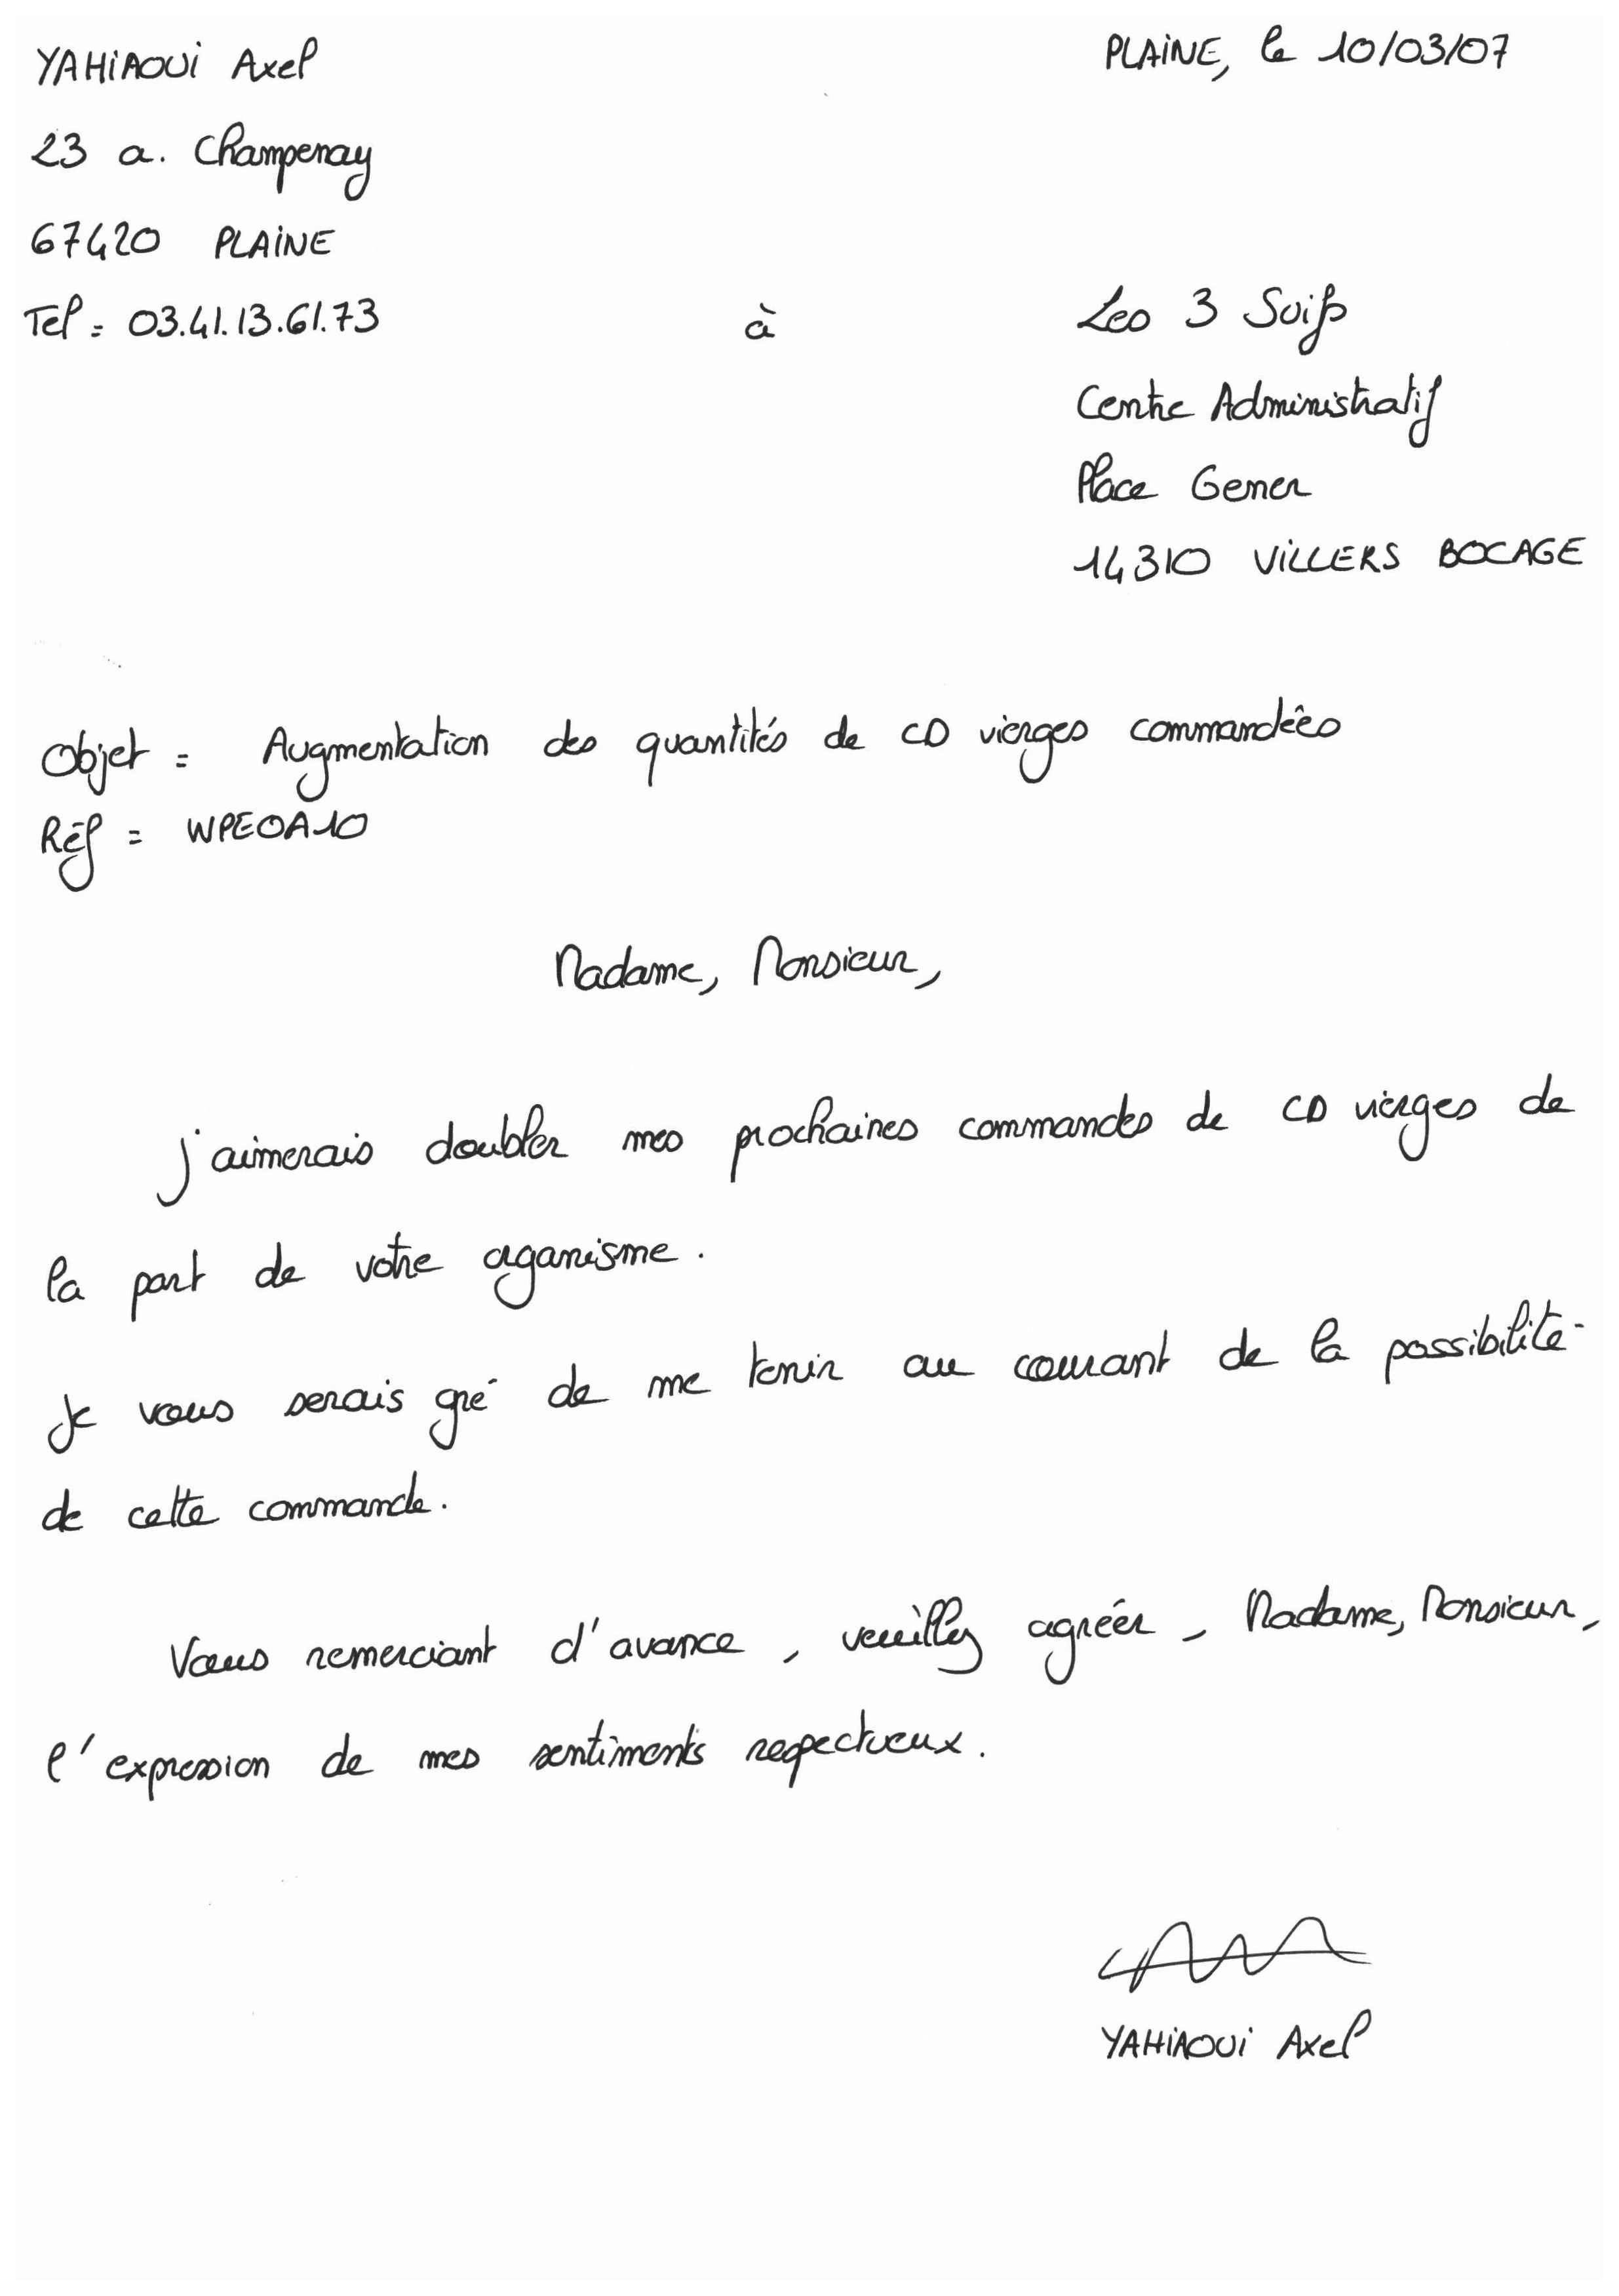 YAHIAOUI Axel
PLAINE, le 10/03/07
23 a. Champenay
67420 PLAINE
Tel = 03.41.13.61.73
à
Les 3 Suiss
Centre Administratif
Place Gemer
14310 VILLERS BOCAGE
Objet = Augmentation des quantités de CD vierges commandées
Réf = WPEOA10
Madame, Monsieur,
j'aimerais doubler mes prochaines commandes de CD vierges de
la part de votre organisme.
Je vous serais gré de me tenir au courant de la possibilité
de cette commande.
Vous remerciant d'avance, veuillez agréer, Madame, Monsieur,
l'expression de mes sentiments respectueux.
YAHIAOUI Axel